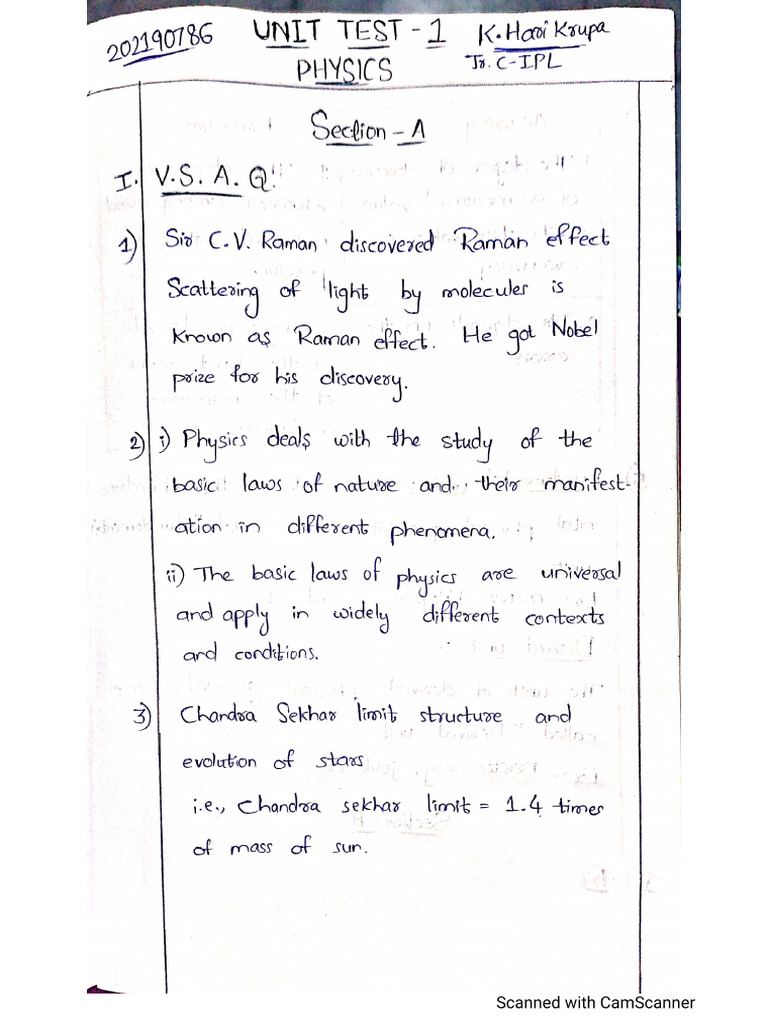 202190786 UNIT TEST - 1 K. Hari Krupa
PHYSICS Jr. C-IPL
Section - A
I. V.S.A.Q.
1) Sir C.V. Raman discovered Raman effect
Scattering of light by molecules is
Known as Raman effect. He got Nobel
prize for his discovery.
2) i) Physics deals with the study of the
basic laws of nature and their manifest-
ation in different phenomena.
ii) The basic laws of physics are universal
and apply in widely different contexts
and conditions.
3) Chandra Sekhar limit structure and
evolution of stars
i.e., Chandra sekhar limit = 1.4 times
of mass of sun.
Scanned with CamScanner